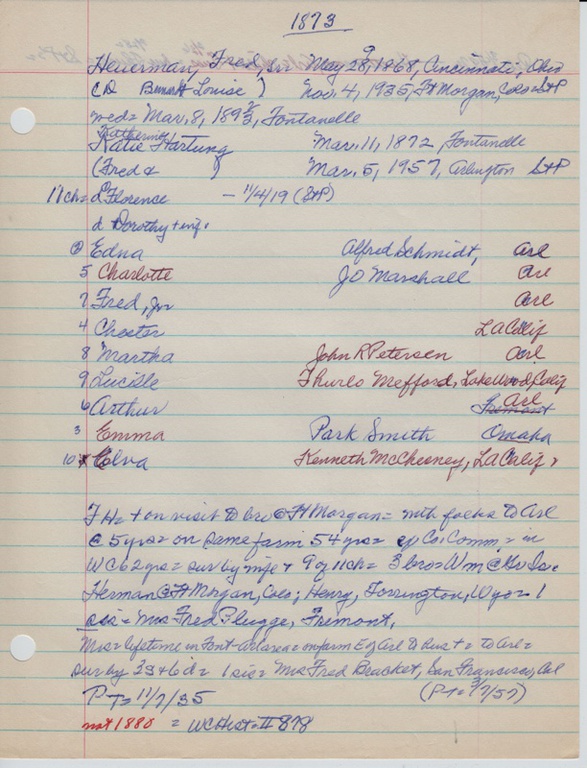 1873
Heuerman, Fred, Sr May 29, 1868, Cincinnati, Ohio
(D Louise ) Nov. 4, 1935, Ft Morgan, Colo S+P
wed= Mar. 8, 1893, Fontanelle
Katherine
Katie Hartung Mar. 11, 1872, Fontanelle
(Fred & ) Mar. 5, 1957, Arlington S+P
11ch= d Florence - 11/4/19 (S+P)
d Dorothy + inf.
Edna Alfred Schmidt, Arl
5 Charlotte JO Marshall Arl
7 Fred, Jr Arl
4 Chester LA Calif
8 Martha John R Petersen Arl
9 Lucille Thurlo Mefford, Lakewood, Calif
6 Arthur Fremont Arl
3 Emma Park Smith Omaha
10 Elva Kenneth McChesney, LA Calif
+ on visit to bro @ Ft Morgan = with folks to Arl
@ 5 yrs = on same farm 54 yrs = Co. Comm. = in
WC 62 yrs = sur by wife + 9 of 11ch = 3 bro = Wm @ Gr Is.
Herman @ Ft Morgan, Colo; Henry, Torrington, Wyo = 1
sis = Mrs Fred Plugge, Fremont,
Mrs = lifetime in Font-Arl area = on farm E of Arl = to Arl =
sur by 3s + 6d = 1 sis = Mrs Fred Bracket, San Francisco, Cal
P-T= 11/7/35 (P-T= 3/7/57)
not 1880 = WC Hist = II 878